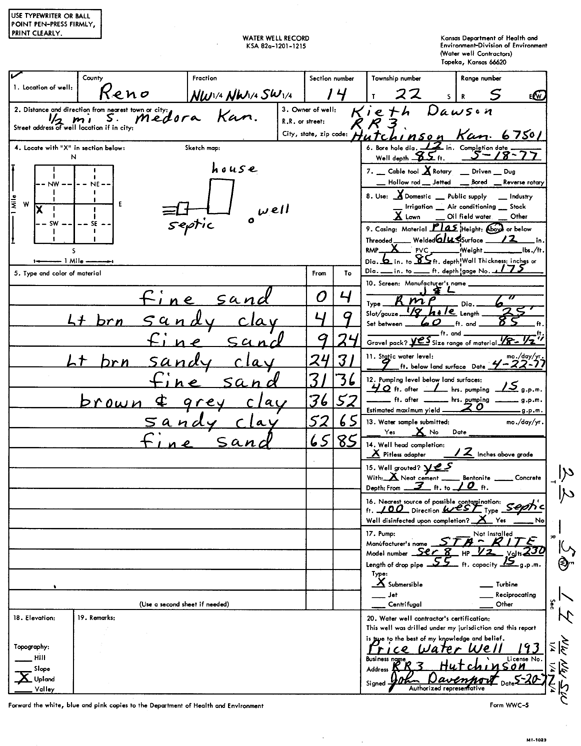 USE TYPEWRITER OR BALL
POINT PEN-PRESS FIRMLY,
PRINT CLEARLY.
WATER WELL RECORD
KSA 82a-1201-1215
Kansas Department of Health and
Environment-Division of Environment
(Water well Contractors)
Topeka, Kansas 66620
1. Location of well: County Reno Fraction NW 1/4 NW 1/4 SW 1/4 Section number 14 Township number T 22 S Range number R 5 E/W
2. Distance and direction from nearest town or city: 1/2 mi S. Medora Kan.
Street address of well location if in city:
3. Owner of well: Kieth Dawson
R.R. or street: RR3
City, state, zip code: Hutchinson Kan. 67501
4. Locate with "X" in section below:
N
NW NE
W X E
SW SE
S
1 Mile
1 Mile
Sketch map:
house
septic
well
6. Bore hole dia. 12 in. Completion date
Well depth 85 ft. 5-18-77
7. Cable tool X Rotary Driven Dug
Hollow rod Jetted Bored Reverse rotary
8. Use: X Domestic Public supply Industry
Irrigation Air conditioning Stock
X Lawn Oil field water Other
9. Casing: Material Plas Height: Above or below
Threaded Welded Glue Surface 12 in.
RMP X PVC Weight lbs./ft.
Dia. 6 in. to 85 ft. depth Wall Thickness: inches or
Dia. in. to ft. depth gage No. .175
5. Type and color of material From To
fine sand 0 4
Lt brn sandy clay 4 9
fine sand 9 24
Lt brn sandy clay 24 31
fine sand 31 36
brown & grey clay 36 52
sandy clay 52 65
fine sand 65 85
(Use a second sheet if needed)
10. Screen: Manufacturer's name
J & L
Type RMP Dia. 6"
Slot/gauze 1/8 hole Length 25'
Set between 60 ft. and 85 ft.
ft. and ft.
Gravel pack? yes Size range of material 1/8-1/2"
11. Static water level: mo./day/yr.
9 ft. below land surface Date 4-22-77
12. Pumping level below land surfaces:
40 ft. after 1 hrs. pumping 15 g.p.m.
ft. after hrs. pumping g.p.m.
Estimated maximum yield 20 g.p.m.
13. Water sample submitted: mo./day/yr.
Yes X No Date
14. Well head completion:
X Pitless adapter 12 Inches above grade
15. Well grouted? yes
With: X Neat cement Bentonite Concrete
Depth: From 3 ft. to 10 ft.
16. Nearest source of possible contamination:
ft. 100 Direction west Type septic
Well disinfected upon completion? X Yes No
17. Pump: Not installed
Manufacturer's name STA-RITE
Model number Ser 8 HP 1/2 Volts 230
Length of drop pipe 55 ft. capacity 15 g.p.m.
Type:
X Submersible Turbine
Jet Reciprocating
Centrifugal Other
18. Elevation:
Topography:
Hill
Slope
X Upland
Valley
19. Remarks:
20. Water well contractor's certification:
This well was drilled under my jurisdiction and this report
is true to the best of my knowledge and belief.
Price Water Well 193
Business name License No.
Address RR3 Hutchinson
Signed John Davenport Date 5-20-77
Authorized representative
Forward the white, blue and pink copies to the Department of Health and Environment
Form WWC-5
T 22 R 5 W Sec 14 1/4 1/4 1/4 NW NW SW